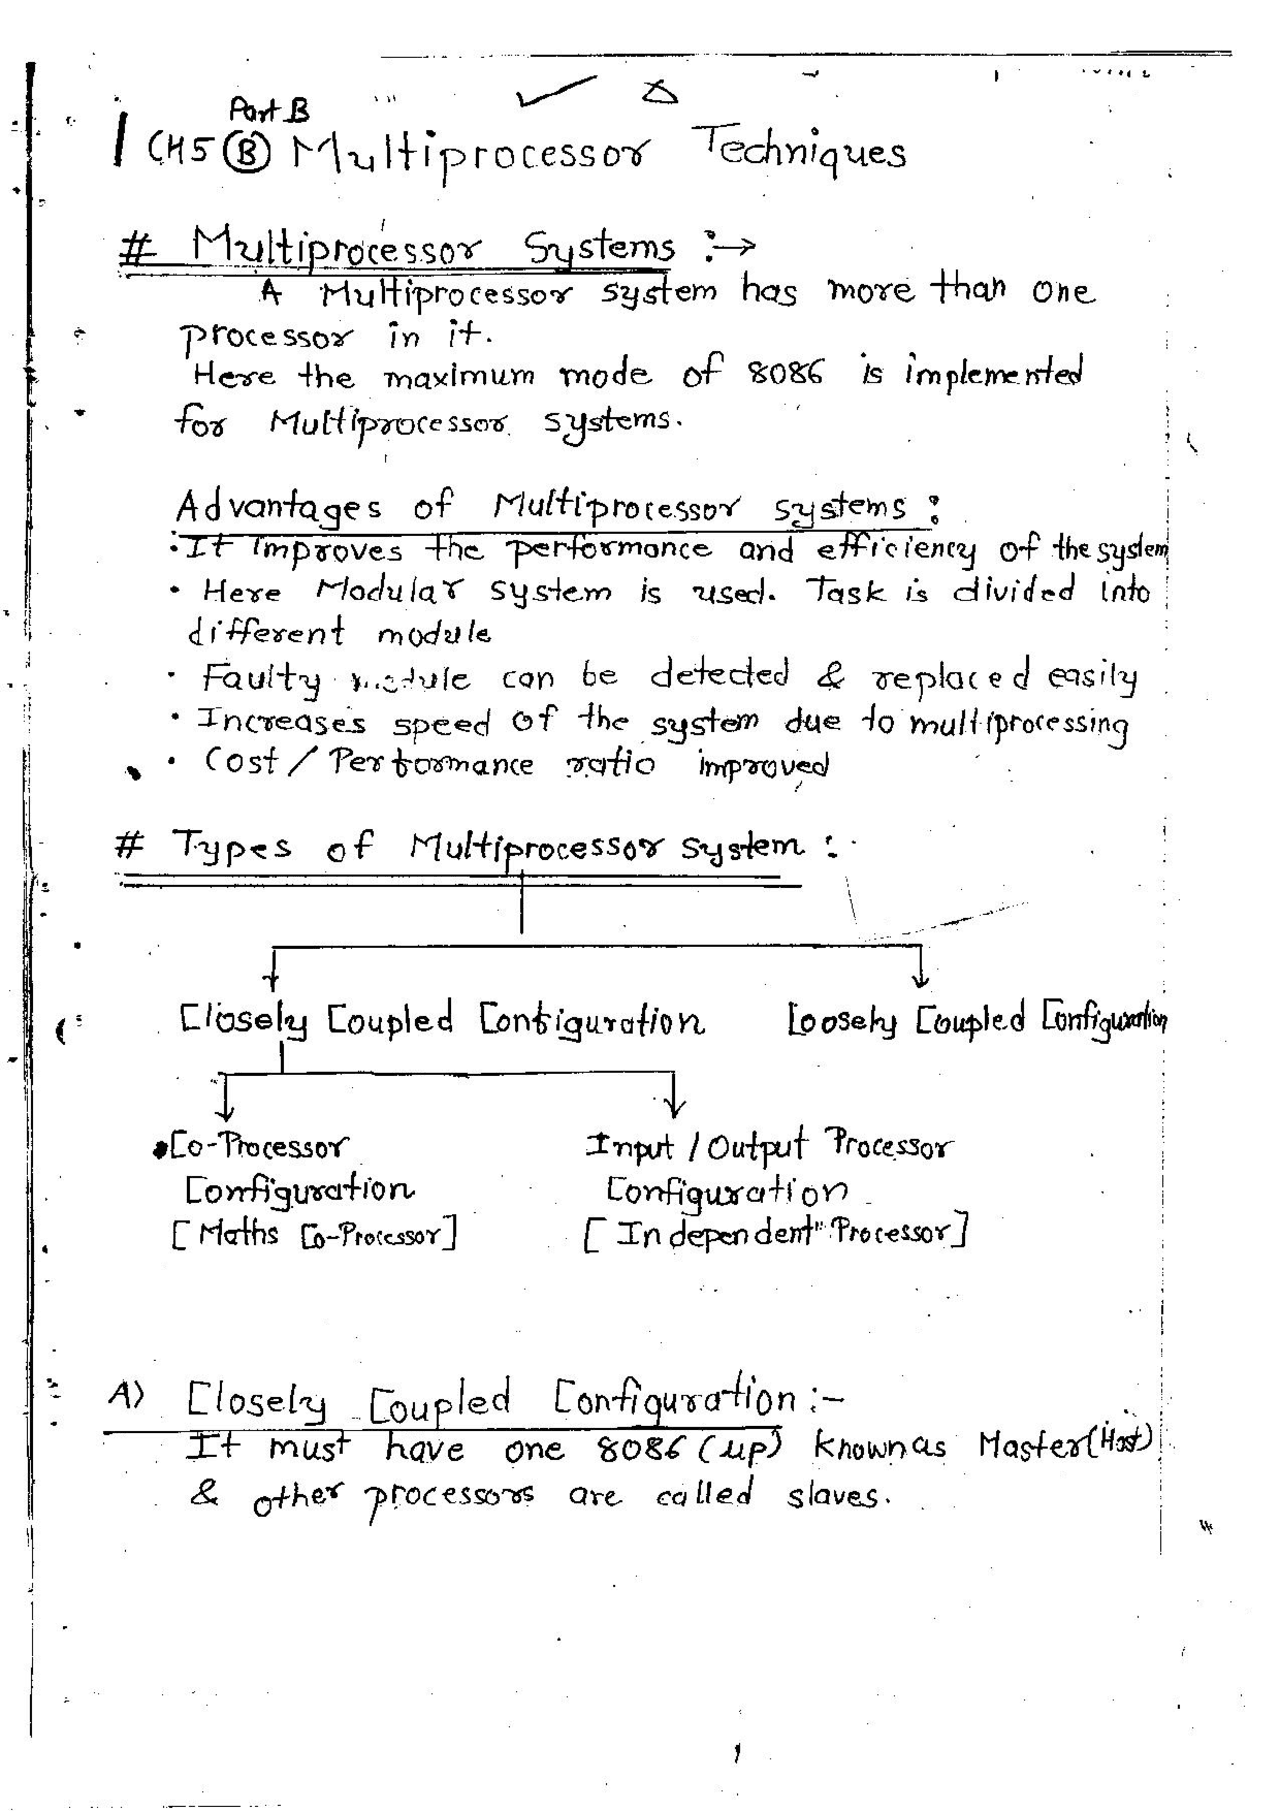 Part B
CH5 (B) Multiprocessor Techniques
# Multiprocessor Systems :→
A Multiprocessor system has more than one
processor in it.
Here the maximum mode of 8086 is implemented
for Multiprocessor systems.
Advantages of Multiprocessor systems :
• It improves the performance and efficiency of the system
• Here Modular system is used. Task is divided into
different module
• Faulty module can be detected & replaced easily
• Increases speed of the system due to multiprocessing
• Cost / Performance ratio improved
# Types of Multiprocessor system :
Closely Coupled Configuration Loosely Coupled Configuration
Co-Processor Input / Output Processor
Configuration Configuration
[Maths Co-Processor] [Independent Processor]
A) Closely Coupled Configuration :-
It must have one 8086 (up) known as Master (Host)
& other processors are called slaves.
1